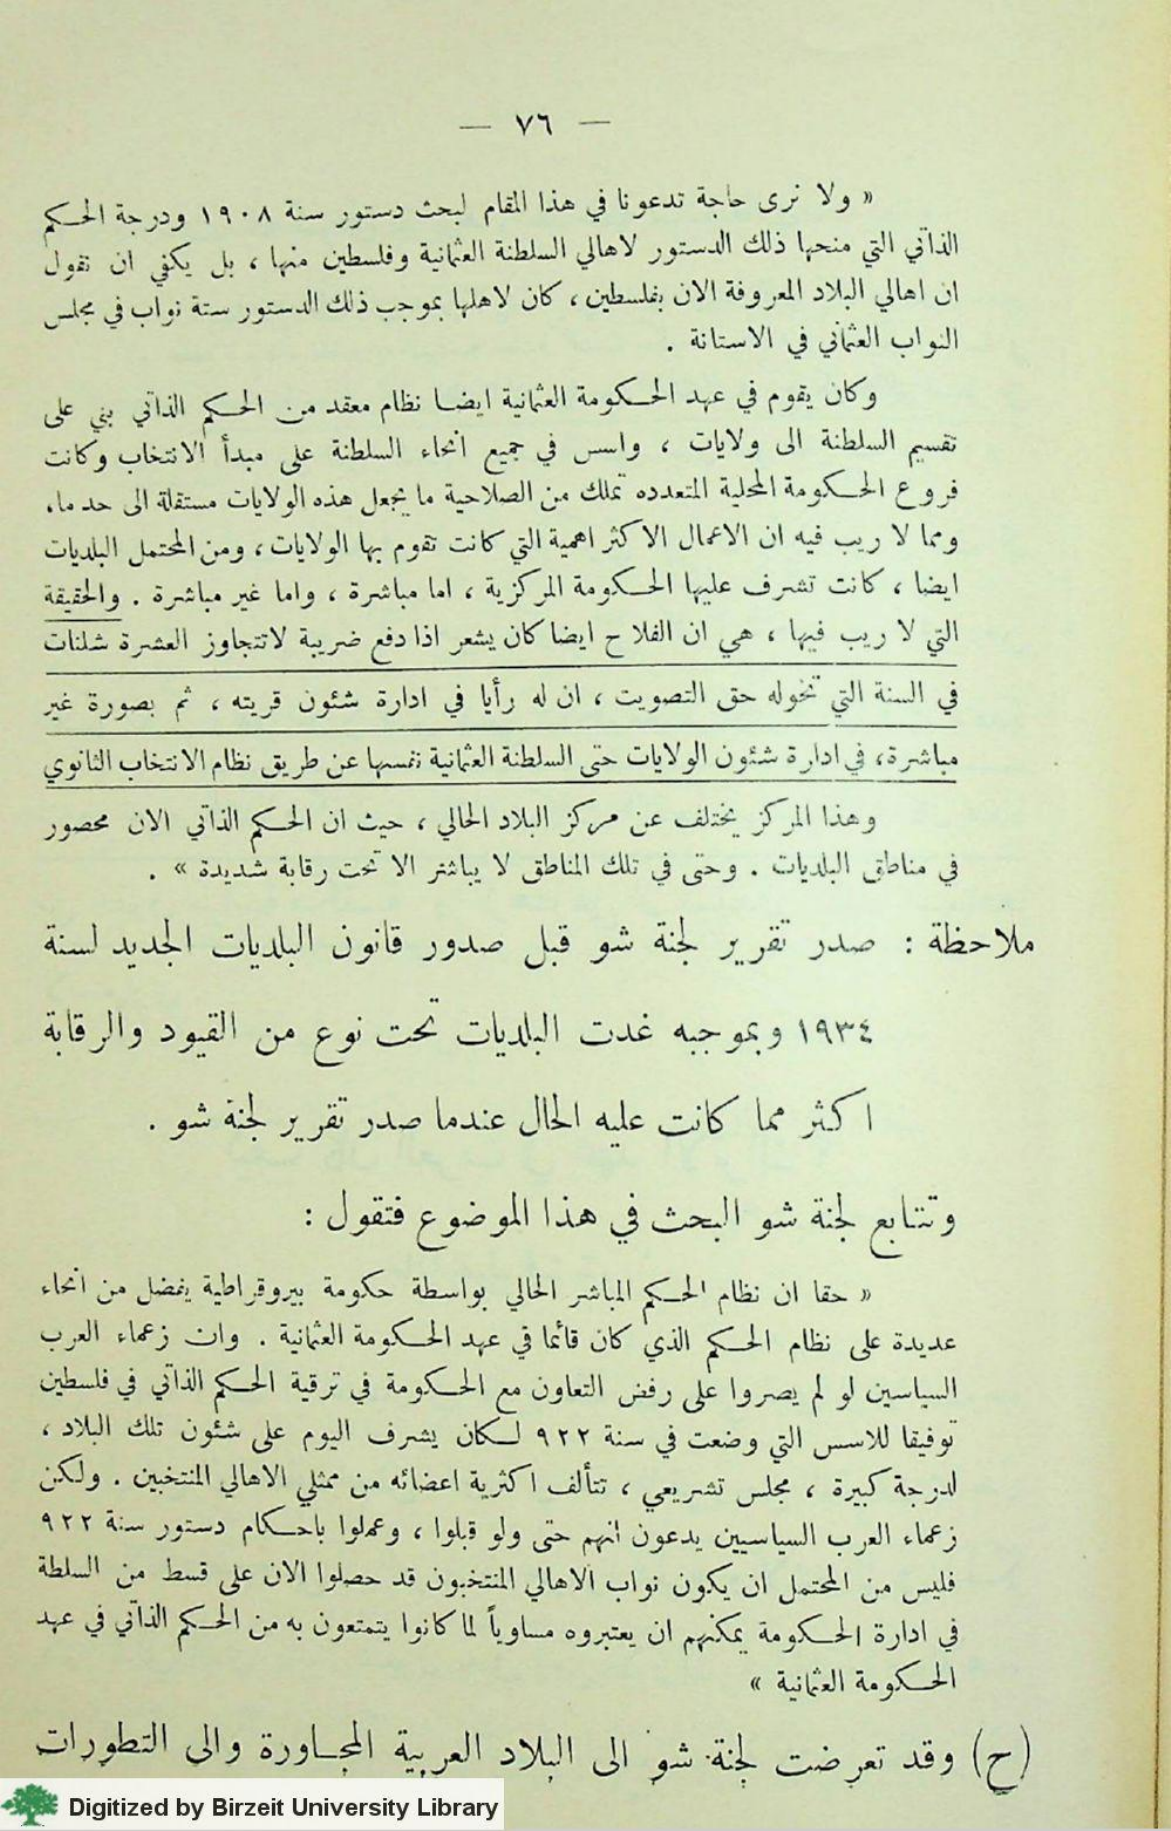 — ٧٦ —
« ولا نرى حاجة تدعونا في هذا المقام لبحث دستور سنة ١٩٠٨ ودرجة الحكم
الذاتي التي منحها ذلك الدستور لاهالي السلطنة العثمانية وفلسطين منها ، بل يكفي ان نقول
ان اهالي البلاد المعروفة الان بفلسطين ، كان لاهلها بموجب ذلك الدستور ستة نواب في مجلس
النواب العثماني في الاستانة .
وكان يقوم في عهد الحكومة العثمانية ايضا نظام معقد من الحكم الذاتي بني على
تقسيم السلطنة الى ولايات ، واسس في جميع انحاء السلطنة على مبدأ الانتخاب وكانت
فروع الحكومة المحلية المتعدده تملك من الصلاحية ما يجعل هذه الولايات مستقلة الى حد ما.
ومما لا ريب فيه ان الاعمال الاكثر اهمية التي كانت تقوم بها الولايات ، ومن المحتمل البلديات
ايضا ، كانت تشرف عليها الحكومة المركزية ، اما مباشرة ، واما غير مباشرة . والحقيقة
التي لا ريب فيها ، هي ان الفلاح ايضا كان يشعر اذا دفع ضريبة لاتتجاوز العشرة شلنات
في السنة التي تخوله حق التصويت ، ان له رأيا في ادارة شئون قريته ، ثم بصورة غير
مباشرة ، في ادارة شئون الولايات حتى السلطنة العثمانية نفسها عن طريق نظام الانتخاب الثانوي
وهذا المركز يختلف عن مركز البلاد الحالي ، حيث ان الحكم الذاتي الان محصور
في مناطق البلديات . وحتى في تلك المناطق لا يباشر الا تحت رقابة شديدة » .
ملاحظة : صدر تقرير لجنة شو قبل صدور قانون البلديات الجديد لسنة
١٩٣٤ وبموجبه غدت البلديات تحت نوع من القيود والرقابة
اكثر مما كانت عليه الحال عندما صدر تقرير لجنة شو .
وتتابع لجنة شو البحث في هذا الموضوع فتقول :
« حقا ان نظام الحكم المباشر الحالي بواسطة حكومة بيروقراطية يفضل من انحاء
عديدة على نظام الحكم الذي كان قائما في عهد الحكومة العثمانية . وان زعماء العرب
السياسين لو لم يصروا على رفض التعاون مع الحكومة في ترقية الحكم الذاتي في فلسطين
توفيقا للاسس التي وضعت في سنة ٩٢٢ لكان يشرف اليوم على شئون تلك البلاد ،
لدرجة كبيرة ، مجلس تشريعي ، تتألف اكثرية اعضائه من ممثلي الاهالي المنتخبين . ولكن
زعماء العرب السياسيين يدعون انهم حتى ولو قبلوا ، وعملوا باحكام دستور سنة ٩٢٢
فليس من المحتمل ان يكون نواب الاهالي المنتخبون قد حصلوا الان على قسط من السلطة
في ادارة الحكومة يمكنهم ان يعتبروه مساوياً لما كانوا يتمتعون به من الحكم الذاتي في عهد
الحكومة العثمانية »
(ح) وقد تعرضت لجنة شو الى البلاد العربية المجاورة والى التطورات
Digitized by Birzeit University Library